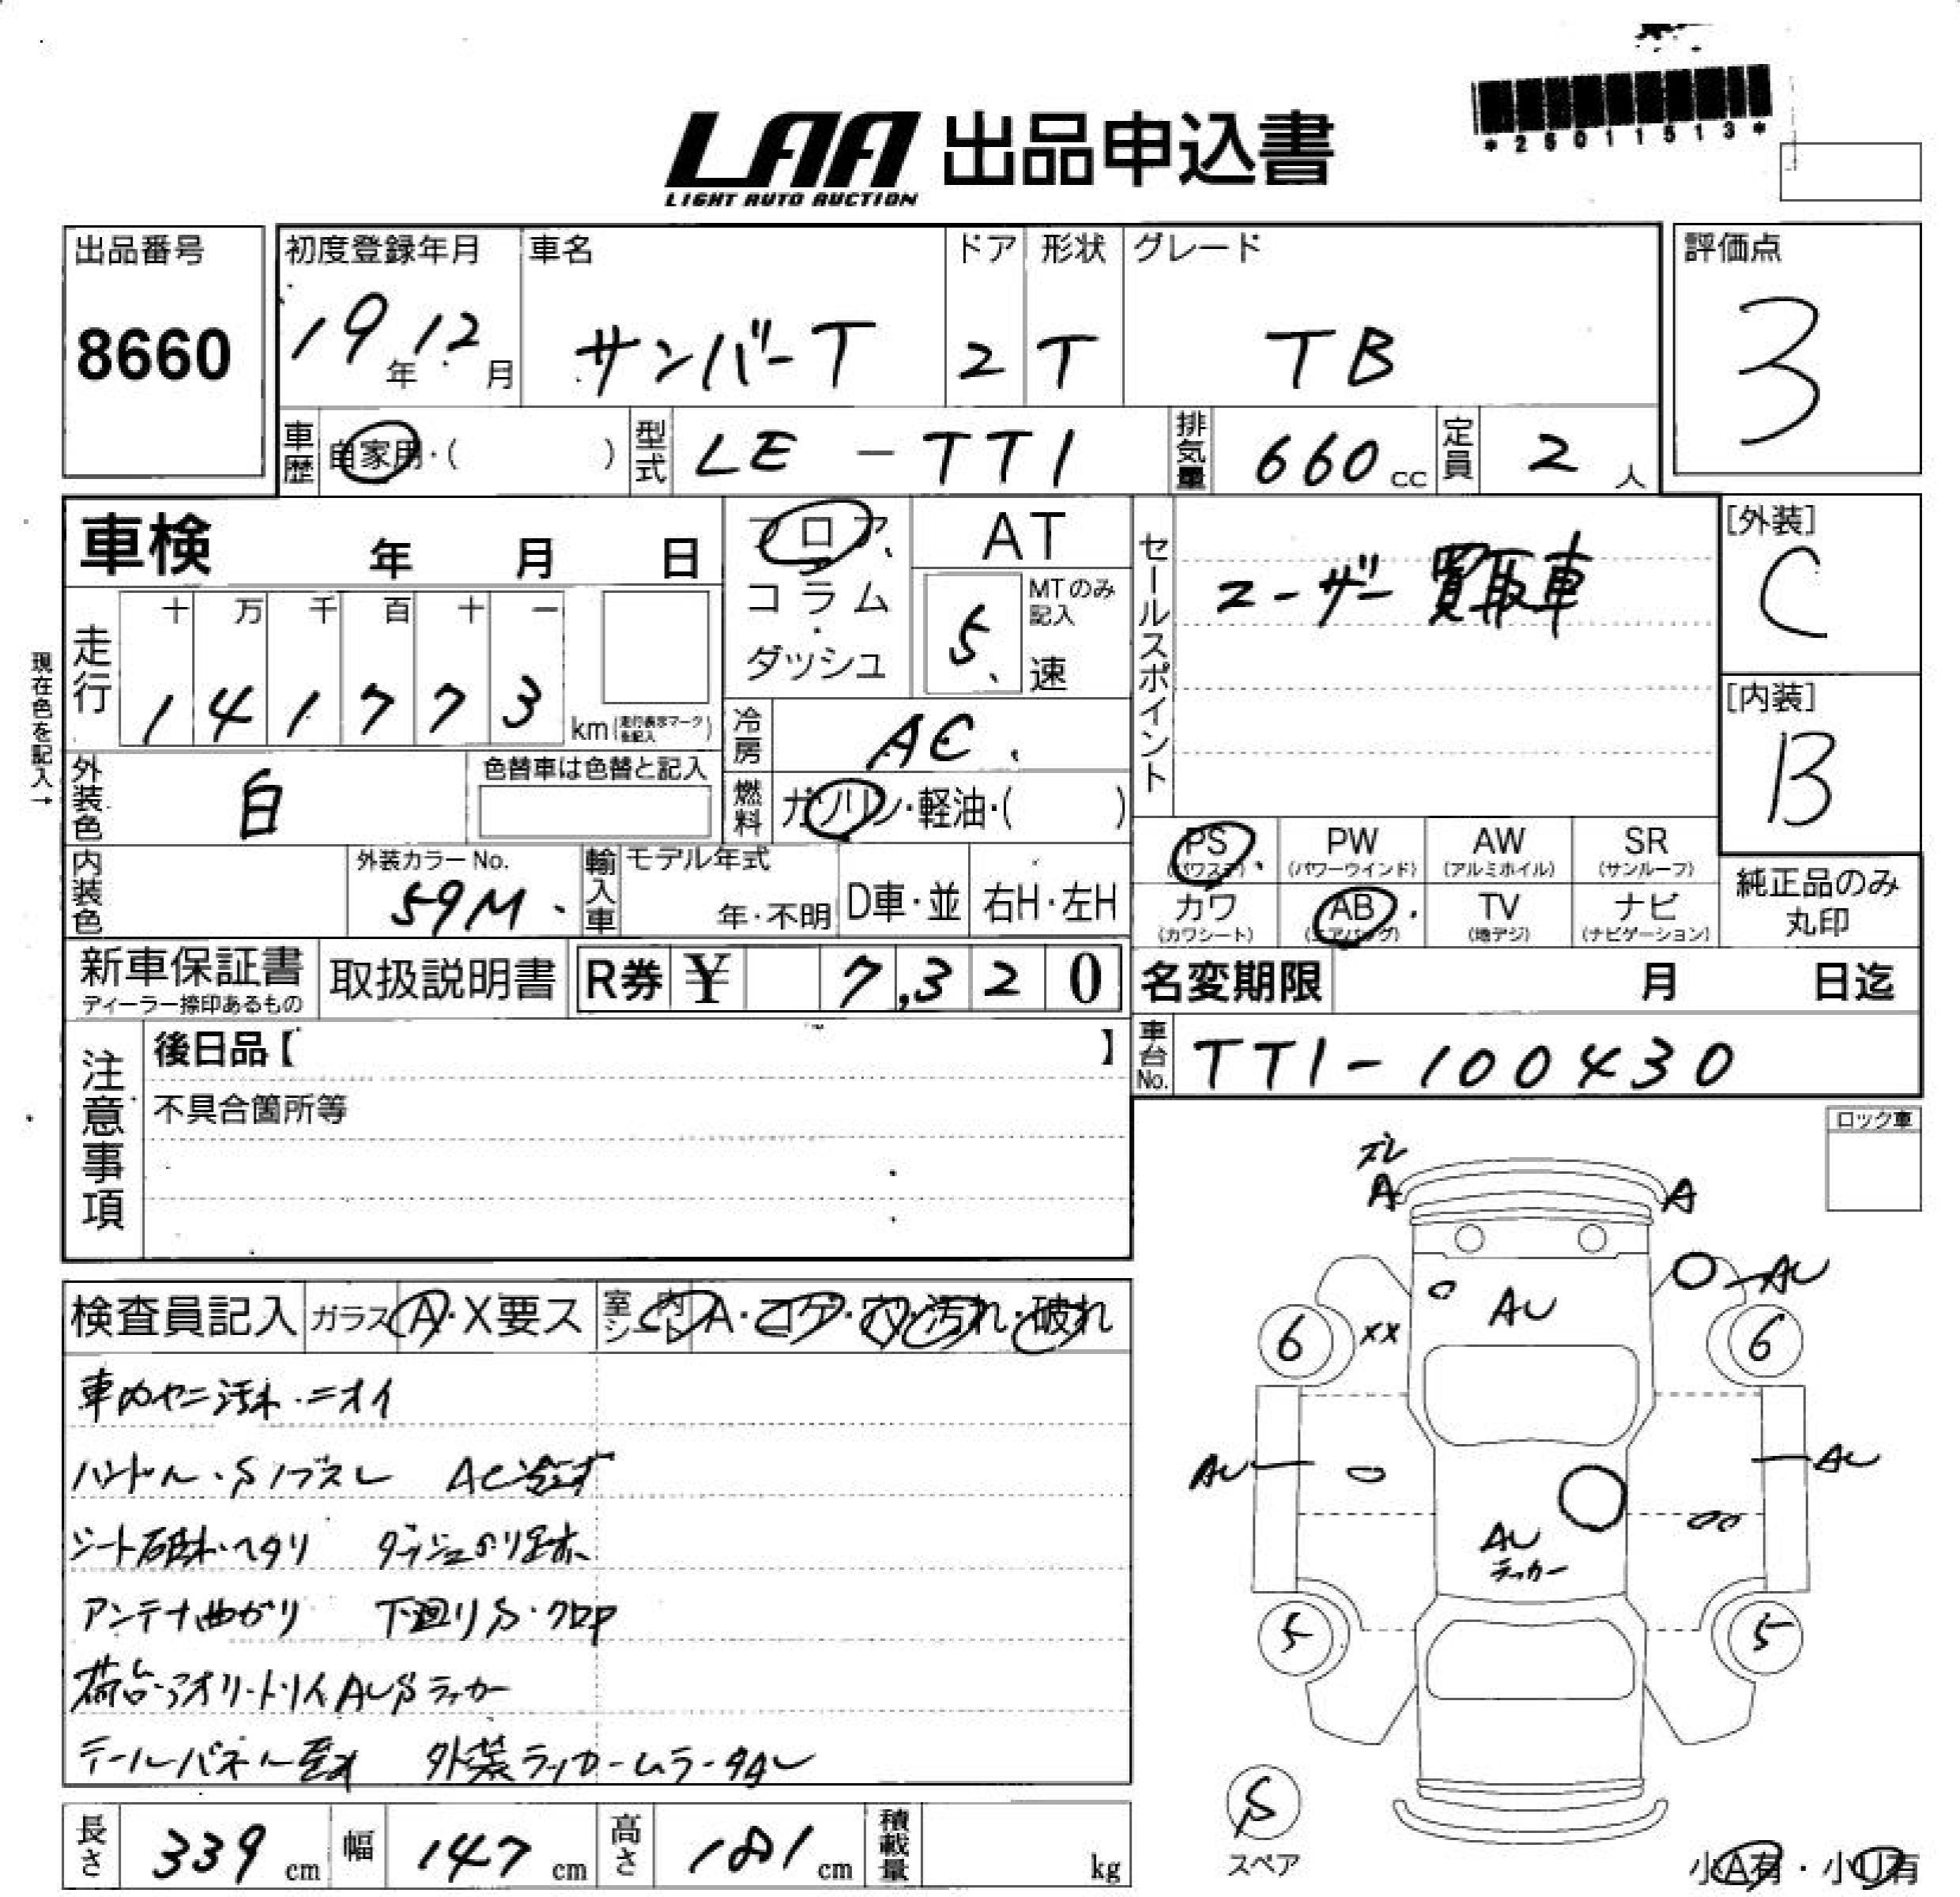 *26011513*
LAA 出品申込書
LIGHT AUTO AUCTION
出品番号
8660
初度登録年月
19年12月
車名
サンバーT
ドア
2
形状
T
グレード
TB
評価点
3
車歴 自家用・( )
型式 LE-TT1
排気量 660cc
定員 2人
車検 年 月 日
現在色を記入→
走行
十 万 千 百 十 一
1 4 1 7 7 3
km(走行表示マークを記入)
フロア
コラム
・
ダッシュ
AT
MTのみ記入
5速
冷房 AC
燃料 ガソリン・軽油・( )
セールスポイント
ユーザー買取車
[外装]
C
[内装]
B
外装色 白
色替車は色替と記入
内装色
外装カラーNo.
59M
輸入車
モデル年式
年・不明
D車・並
右H・左H
PS (パワステ)
PW (パワーウインド)
AW (アルミホイル)
SR (サンルーフ)
カワ (カワシート)
AB (エアバッグ)
TV (地デジ)
ナビ (ナビゲーション)
純正品のみ
丸印
新車保証書
ディーラー捺印あるもの
取扱説明書
R券 ¥ 7,320
名変期限 月 日迄
車台No. TT1-100430
注意事項
後日品【 】
不具合箇所等
ロック車
検査員記入
ガラス A・X要ス
室内シート A・コゲ・穴・汚れ・破れ
車内ヤニ汚れ・ニオイ
ハンドル・Sノブスレ AC冷えず
シート破れ・ヘタリ
アンテナ曲がり 下廻りS・クロP
荷台・アオリ・トリイAUSラッカー
テールパネル歪み 外装ラッカームラ
スレ
A
A
AU
AU
6
XX
6
AU
AU
AU
ラッカー
5
5
S
スペア
小A有・小U有
長さ 339cm
幅 147cm
高さ 181cm
積載量 kg